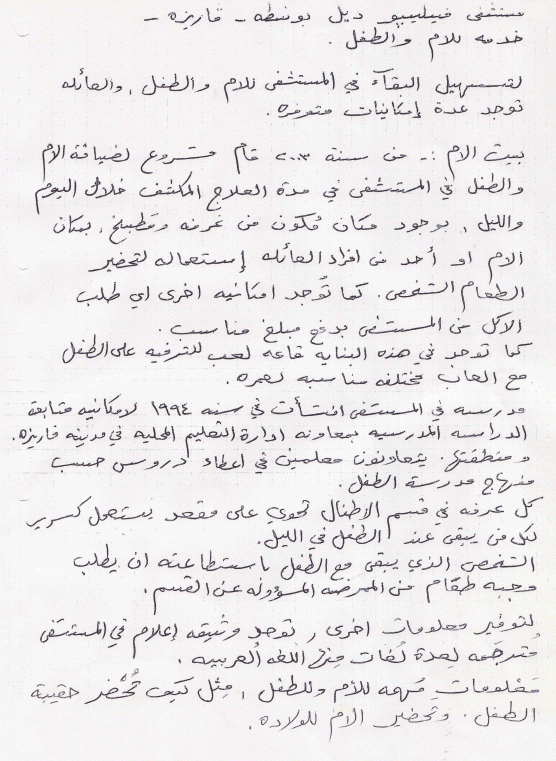 مستشفى فيليبو ديل بونطه - فاريزه -
خدمه للام والطفل .
لتسهيل البقاء في المستشفى للام والطفل , والعائله
توجد عدة إمكانيات متوفره .
بيت الام :- من سنة ٢٠٠٣ قام مشروع لضيافة الام
والطفل في المستشفى في مدة العلاج المكثف خلال اليوم
والليل , بوجود مكان مُكون من غرفه ومَطبخ , بمكان
الام او أحد من افراد العائله إستعماله لتحضير
الطعام الشخصي . كما تُوجد امكانيه اخرى اي طلب
الاكل من المستشفى بدفع مبلغ مناسب .
كما توجد في هذه البنايه قاعه لعب للترفيه على الطفل
مع العاب مختلفه مناسبه لعمره .
مدرسه في المستشفى انشأت في سنه ١٩٩٤ لامكانيه متابعة
الدراسه المدرسيه بمعاونه ادارة التعليم المحليه في مدينه فاريزه .
ومنطقتها . يتعاونون معلمين في اعطاء دروس حسب
منهاج مدرسة الطفل .
كل غرفه في قسم الاطفال تحوي على مقعد يستعمل كسرير
لكل من يبقى عند الطفل في الليل .
الشخص الذي يبقى مع الطفل باستطاعته ان يطلب
وجبه طعام من الممرضه المسؤوله عن القسم .
لتوفير معلومات اخرى , توجد وثيقه إعلام في المستشفى
مُترجَمه لعدة لُغات مِنها اللغه العربيه .
مَعْلومات مُهمه للأم وللطفل , مِثل كيف تُحْضر حقيبة
الطفل . وتحضير الام للولاده .